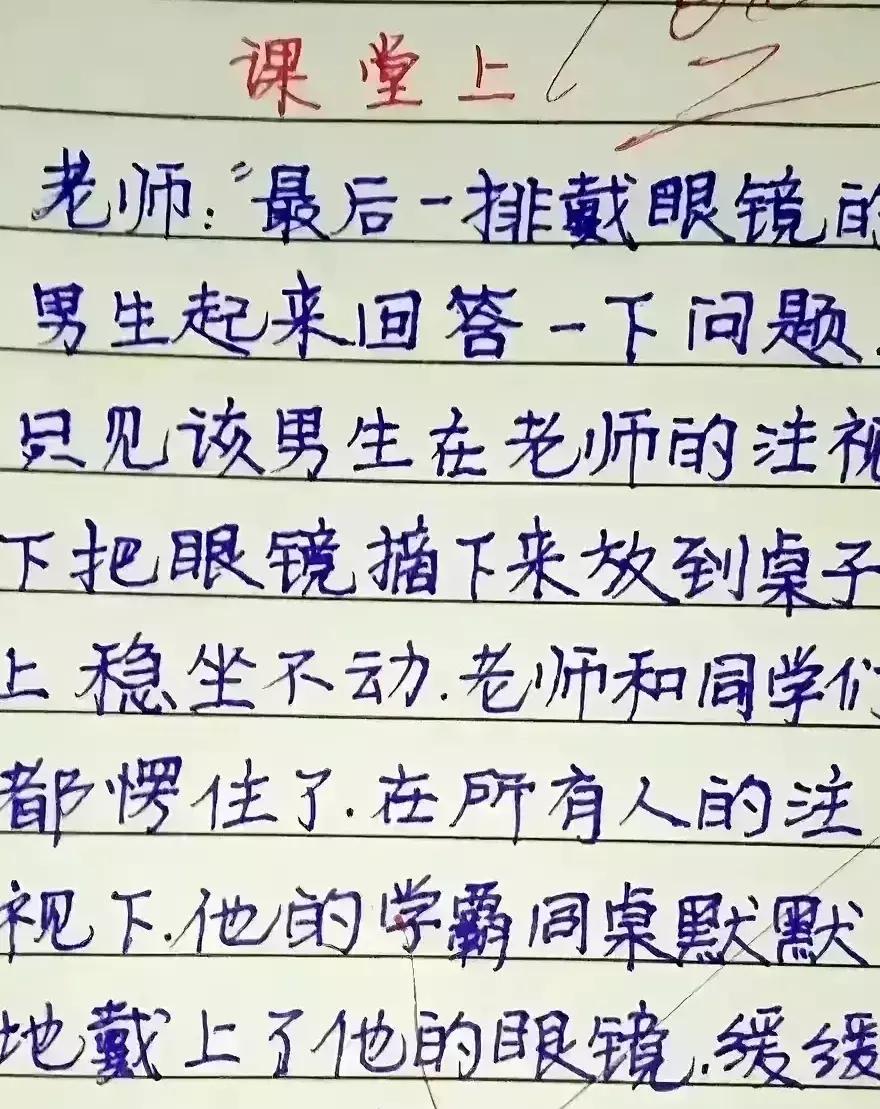 课堂上
老师:“最后一排戴眼镜的
男生起来回答一下问题.
只见该男生在老师的注视
下把眼镜摘下来放到桌子
上稳坐不动.老师和同学们
都愣住了.在所有人的注
视下.他的学霸同桌默默
地戴上了他的眼镜.缓缓